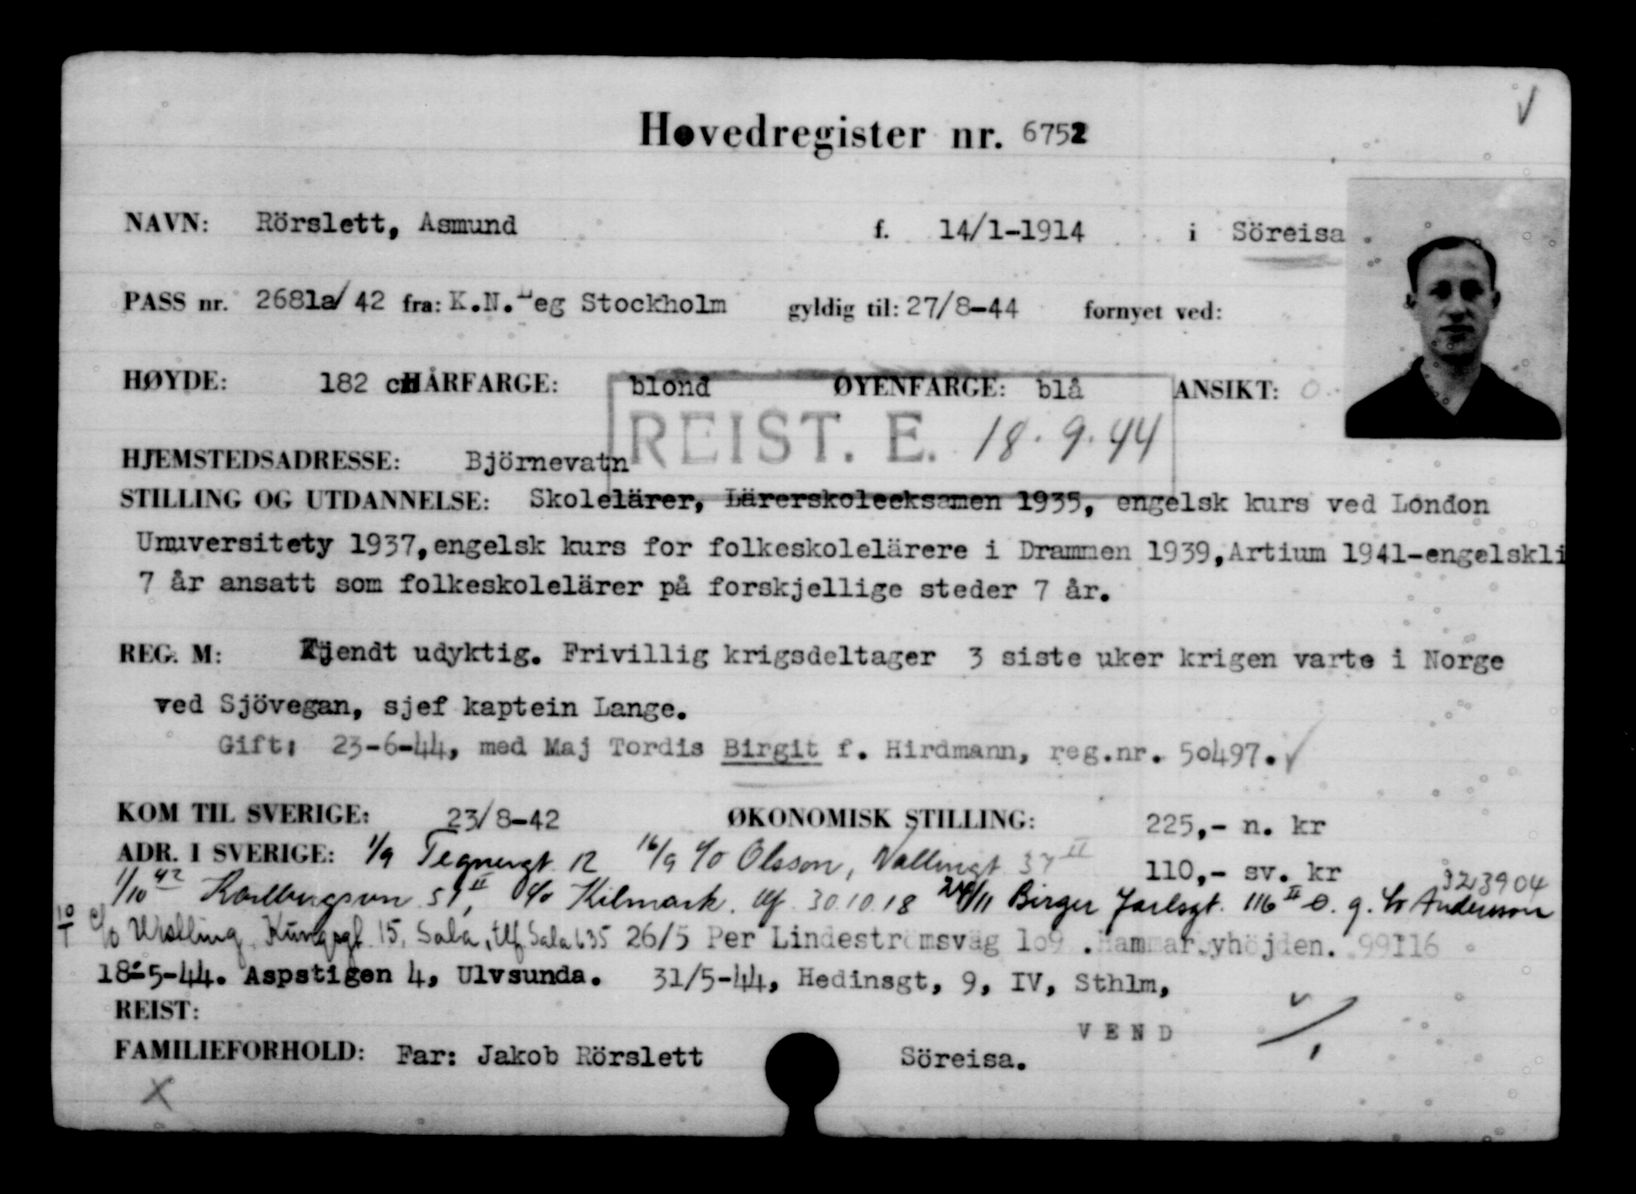 Hovedregister nr. 6752
NAVN: Rörslett, Asmund f. 14/1-1914 i Söreisa
PASS nr. 2681a/42 fra: K.N.Leg Stockholm gyldig til: 27/8-44 fornyet ved:
HØYDE: 182 cm HÅRFARGE: blond ØYENFARGE: blå ANSIKT:
REIST. E. 18.9.44
HJEMSTEDSADRESSE: Björnevatn
STILLING OG UTDANNELSE: Skolelärer, Lärerskoleeksamen 1935, engelsk kurs ved London
Unuversitety 1937, engelsk kurs for folkeskolelärere i Drammen 1939, Artium 1941-engelskli
7 år ansatt som folkeskolelärer på forskjellige steder 7 år.
REG. M: Kjendt udyktig. Frivillig krigsdeltager 3 siste uker krigen varte i Norge
ved Sjövegan, sjef kaptein Lange.
Gift: 23-6-44, med Maj Tordis Birgit f. Hirdmann, reg.nr. 50497.
KOM TIL SVERIGE: 23/8-42 ØKONOMISK STILLING: 225,- n. kr
ADR. I SVERIGE: 1/9 Tegnergt 12 16/9 c/o Olsson, Vallingt 37 II 110,- sv. kr 323904
1/10 42 Karlbergsvn 51, II c/o Kilmark. tlf 30.10.18 24/11 Birger Jarlsgt. 116 II ö. g. c/o Anderson
10/1 c/o Walling, Kungsgt. 15, Sala, tlf Sala 635 26/5 Per Lindeströmsväg 109. Hammarbyhöjden. 99116
18-5-44. Aspstigen 4, Ulvsunda. 31/5-44, Hedinsgt, 9, IV, Sthlm,
REIST:
VEND
FAMILIEFORHOLD: Far: Jakob Rörslett Söreisa.